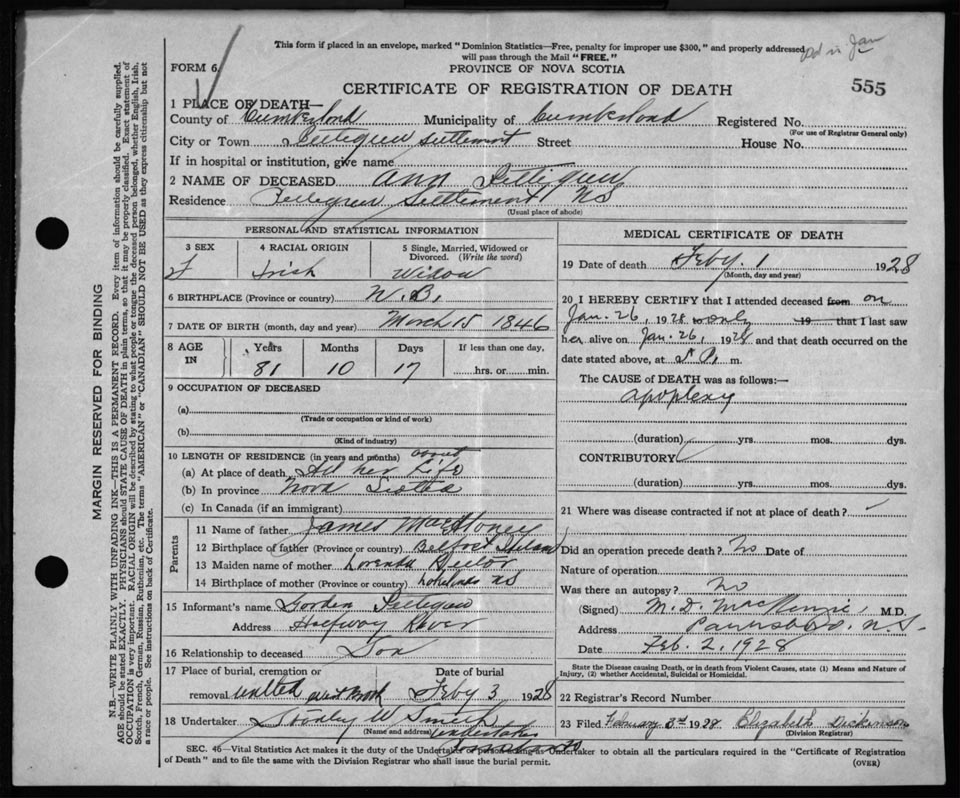 This form if placed in an envelope, marked "Dominion Statistics—Free, penalty for improper use $300," and properly addressed
will pass through the Mail "FREE."
in Jan
FORM 6
PROVINCE OF NOVA SCOTIA
CERTIFICATE OF REGISTRATION OF DEATH
555
1 PLACE OF DEATH—
County of Cumberland Municipality of Cumberland Registered No.
(For use of Registrar General only)
City or Town Pettigrew Settlement Street House No.
If in hospital or institution, give name
2 NAME OF DECEASED Ann Pettigrew
Residence Pettigrew Settlement NS
(Usual place of abode)
PERSONAL AND STATISTICAL INFORMATION
3 SEX 4 RACIAL ORIGIN 5 Single, Married, Widowed or
Divorced. (Write the word)
F Irish Widow
6 BIRTHPLACE (Province or country) N.B.
7 DATE OF BIRTH (month, day and year) March 15 1846
8 AGE IN Years Months Days If less than one day,
81 10 17 hrs. or min.
9 OCCUPATION OF DECEASED
(a)
(Trade or occupation or kind of work)
(b)
(Kind of industry)
10 LENGTH OF RESIDENCE (in years and months) about
(a) At place of death All her Life
(b) In province Nova Scotia
(c) In Canada (if an immigrant)
Parents
11 Name of father James
12 Birthplace of father (Province or country) Belfast Ireland
13 Maiden name of mother Lorenda Hector
14 Birthplace of mother (Province or country) NS
15 Informant's name Gorden Pettigrew
Address Halfway River
16 Relationship to deceased Son
17 Place of burial, cremation or Date of burial
removal United West Brook Feby 3 1928
18 Undertaker W Smith
(Name and address) undertaker
MEDICAL CERTIFICATE OF DEATH
19 Date of death Feby. 1 1928
(Month, day and year)
20 I HEREBY CERTIFY that I attended deceased from on
Jan. 26, 1928 to only 19 that I last saw
her alive on Jan. 26, 1928 and that death occurred on the
date stated above, at P. m.
The CAUSE OF DEATH was as follows:—
apoplexy
(duration) yrs. mos. dys.
CONTRIBUTORY
(duration) yrs. mos. dys.
21 Where was disease contracted if not at place of death?
Did an operation precede death? No Date of
Nature of operation
Was there an autopsy? No
(Signed) M. D. MacKenzie, M.D.
Address Parrsboro. N.S.
Date Feb. 2, 1928
State the Disease causing Death, or in death from Violent Causes, state (1) Means and Nature of
Injury, (2) whether Accidental, Suicidal or Homicidal.
22 Registrar's Record Number
23 Filed February 3rd 1928 Elizabeth Dickinson
(Division Registrar)
SEC. 46—Vital Statistics Act makes it the duty of the Undertaker or person acting as Undertaker to obtain all the particulars required in the "Certificate of Registration
of Death" and to file the same with the Division Registrar who shall issue the burial permit.
(OVER)
MARGIN RESERVED FOR BINDING
N.B.—WRITE PLAINLY WITH UNFADING INK—THIS IS A PERMANENT RECORD. Every item of information should be carefully supplied.
AGE should be stated EXACTLY. PHYSICIANS should STATE CAUSE OF DEATH in plain terms, so that it may be properly classified. Exact statement of
OCCUPATION is very important. RACIAL ORIGIN will be described by stating to what people or tongue the deceased person belonged, whether English, Irish,
Scotch, French, German, Russian, Ruthenian, etc. The terms "AMERICAN" or "CANADIAN" SHOULD NOT BE USED as they express citizenship but not
a race or people. See instructions on back of Certificate.